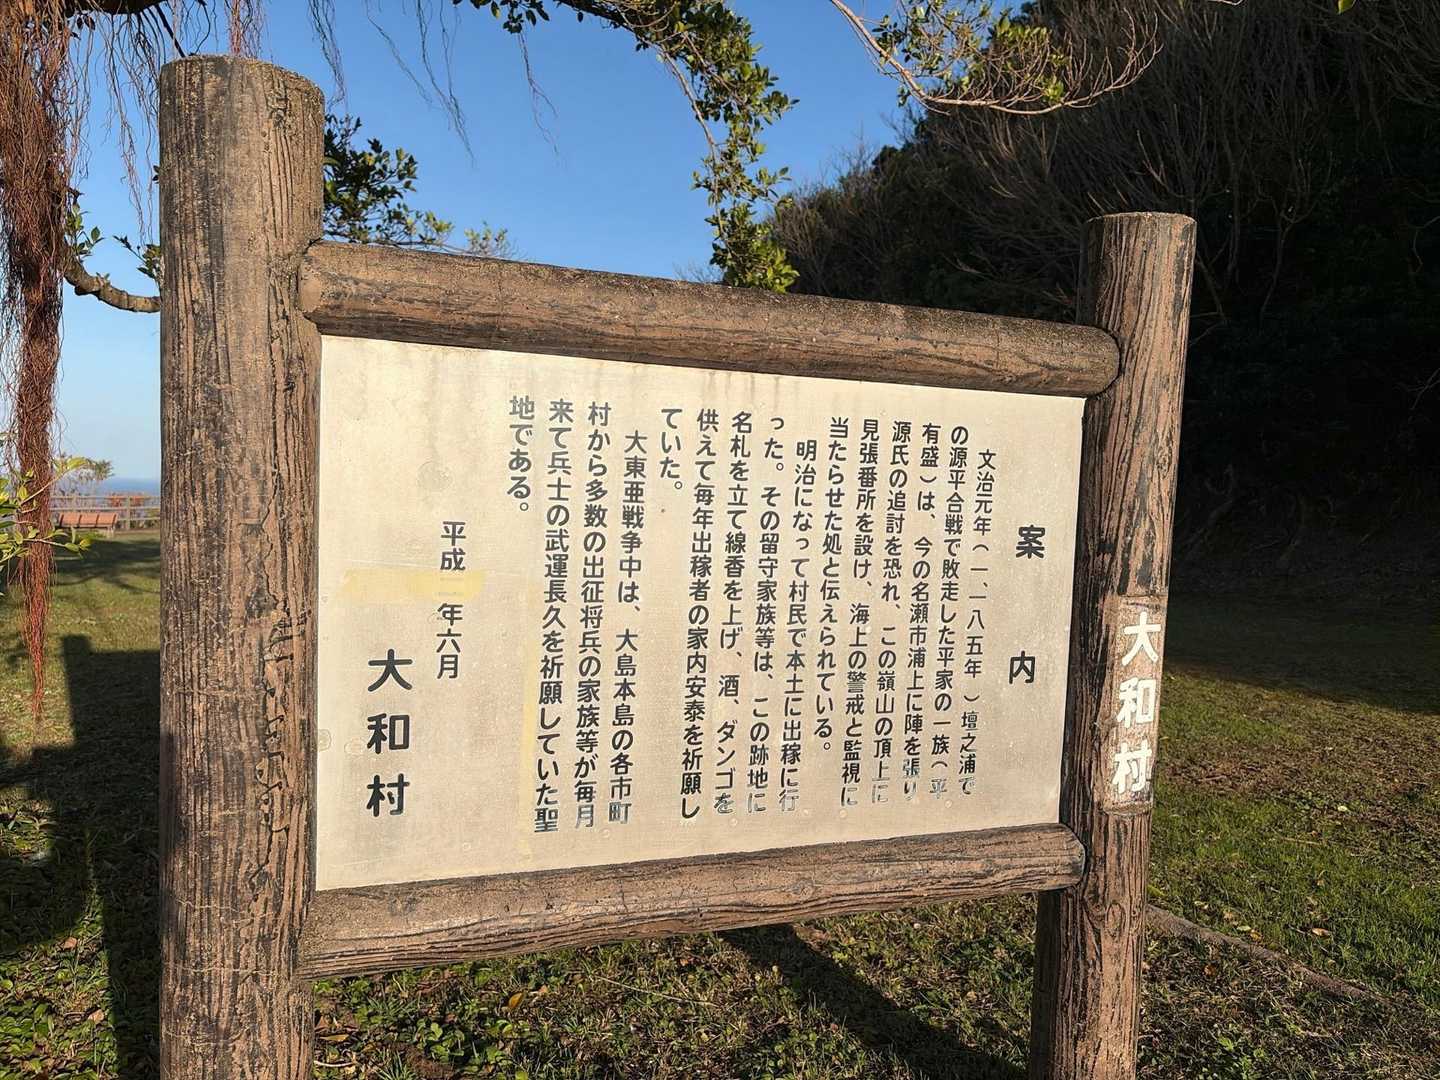 案内
文治元年(一、一八五年)壇之浦で
の源平合戦で敗走した平家の一族(平
有盛)は、今の名瀬市浦上に陣を張り
源氏の追討を恐れ、この嶺山の頂上に
見張番所を設け、海上の警戒と監視に
当たらせた処と伝えられている。
明治になって村民で本土に出稼に行
った。その留守家族等は、この跡地に
名札を立て線香を上げ、酒、ダンゴを
供えて毎年出稼者の家内安泰を祈願し
ていた。
大東亜戦争中は、大島本島の各市町
村から多数の出征将兵の家族等が毎月
来て兵士の武運長久を祈願していた聖
地である。
平成 年六月
大和村
大和村